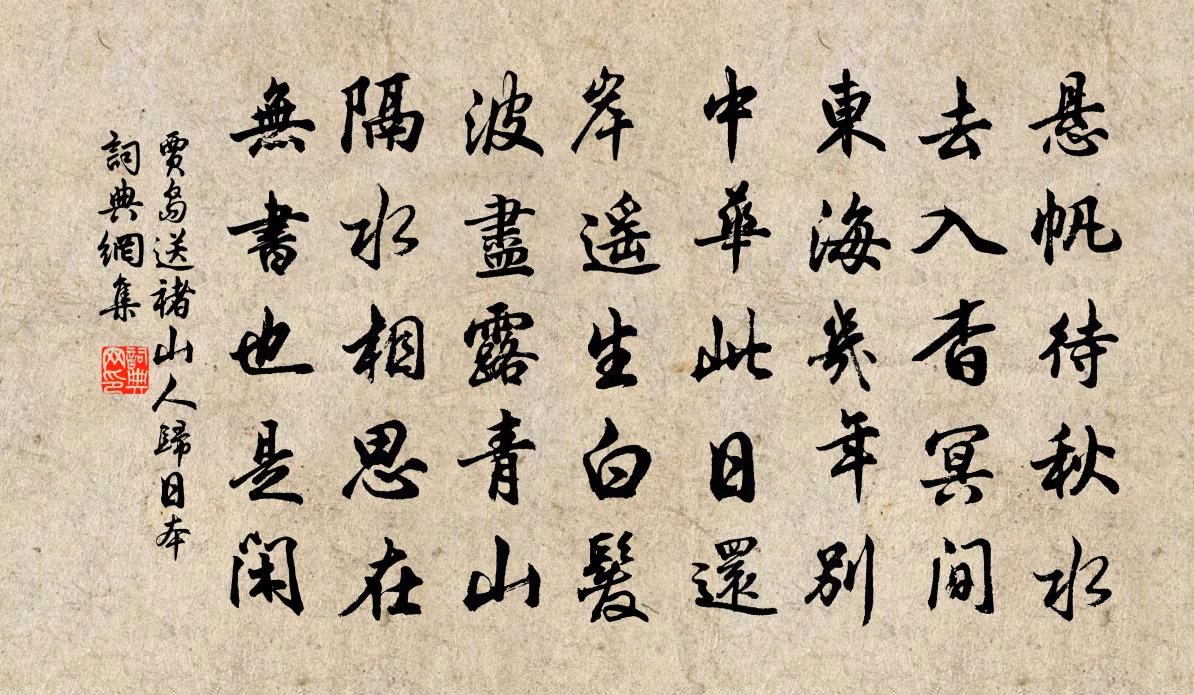 悬帆待秋水
去入杳冥间
東海幾年别
中華此日還
岸遥生白髮
波盡露青山
隔水相思在
無書也是闲
賈島送褚山人歸日本
詞典網集
詞典
网印